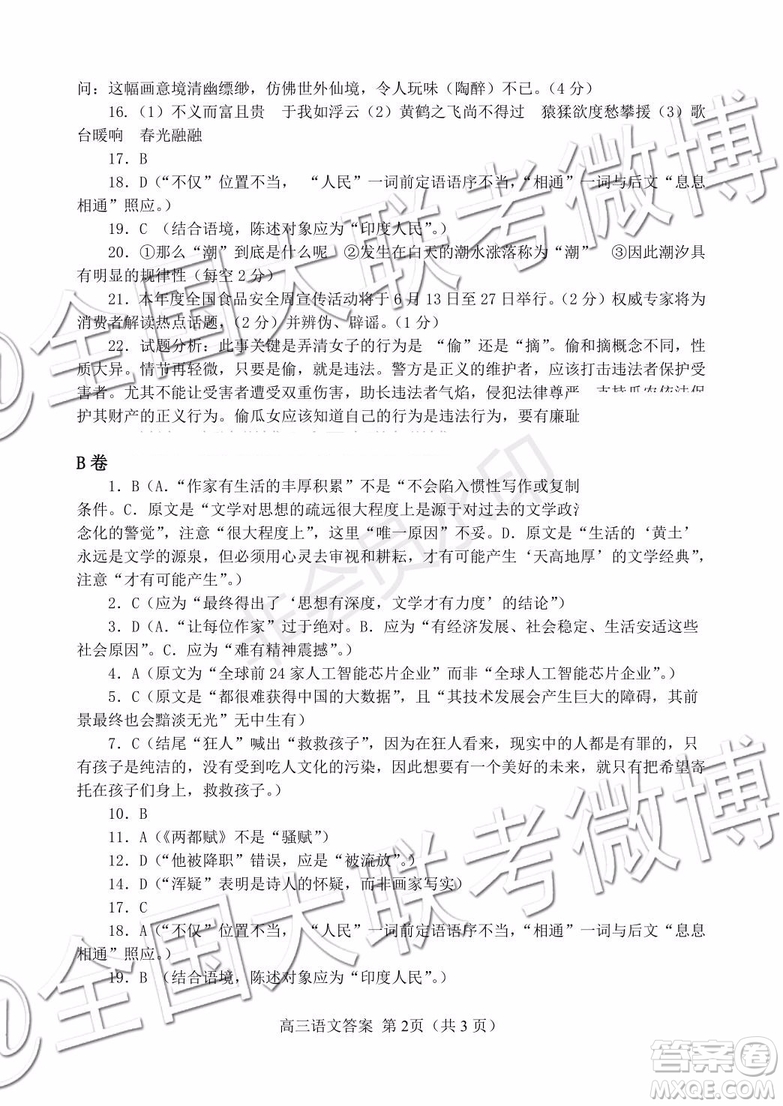 问：这幅画意境清幽缥缈，仿佛世外仙境，令人玩味（陶醉）不已。（4 分）
16.（1）不义而富且贵　于我如浮云（2）黄鹤之飞尚不得过　猿猱欲度愁攀援（3）歌
台暖响　春光融融
17. B
18. D（“不仅”位置不当，　“人民”一词前定语语序不当，“相通”一词与后文“息息
相通”照应。）
19. C （结合语境，陈述对象应为“印度人民”。）
20. ①那么“潮”到底是什么呢　②发生在白天的潮水涨落称为“潮”　③因此潮汐具
有明显的规律性（每空 2 分）
21. 本年度全国食品安全周宣传活动将于 6 月 13 日至 27 日举行。（2 分）权威专家将为
消费者解读热点话题，（2 分）并辨伪、辟谣。（1 分）
22. 试题分析：此事关键是弄清女子的行为是 “偷”还是“摘”。偷和摘概念不同，性
质大异。情节再轻微，只要是偷，就是违法。警方是正义的维护者，应该打击违法者保护受
害者。尤其不能让受害者遭受双重伤害，助长违法者气焰，侵犯法律尊严
护其财产的正义行为。偷瓜女应该知道自己的行为是违法行为，要有廉耻
B 卷
1. B（A．“作家有生活的丰厚积累”不是“不会陷入惯性写作或复制
条件。C．原文是“文学对思想的疏远很大程度上是源于对过去的文学政
念化的警觉”，注意“很大程度上”，这里“唯一原因”不妥。D．原文是“生活的‘黄土’
永远是文学的源泉，但必须用心灵去审视和耕耘，才有可能产生‘天高地厚’的文学经典”，
注意“才有可能产生”。）
2. C（应为“最终得出了‘思想有深度，文学才有力度’的结论”）
3. D（A．“让每位作家”过于绝对。B．应为“有经济发展、社会稳定、生活安适这些
社会原因”。C．应为“难有精神震撼”。）
4. A（原文为“全球前 24 家人工智能芯片企业”而非“全球人工智能芯片企业”。）
5. C（原文是“都很难获得中国的大数据”，且“其技术发展会产生巨大的障碍，其前
景最终也会黯淡无光”无中生有）
7. C（结尾“狂人”喊出“救救孩子”，因为在狂人看来，现实中的人都是有罪的，只
有孩子是纯洁的，还没有受到吃人文化的污染，因此想要有一个美好的未来，就只有把希望寄
托在孩子们身上，救救孩子。）
10. B
11. A（《两都赋》不是“骚赋”）
12. D（“他被降职”错误，应是“被流放”。）
14. D（“浑疑”表明是诗人的怀疑，而非画家写实）
17. C
18. A（“不仅”位置不当，　“人民”一词前定语语序不当，“相通”一词与后文“息息
相通”照应。）
19. B （结合语境，陈述对象应为“印度人民”。）
高三语文答案 第 2页（共 3 页）
@全国大联考微博
@全国大联考微博
非会员水印
答案卷
MXQE.COM